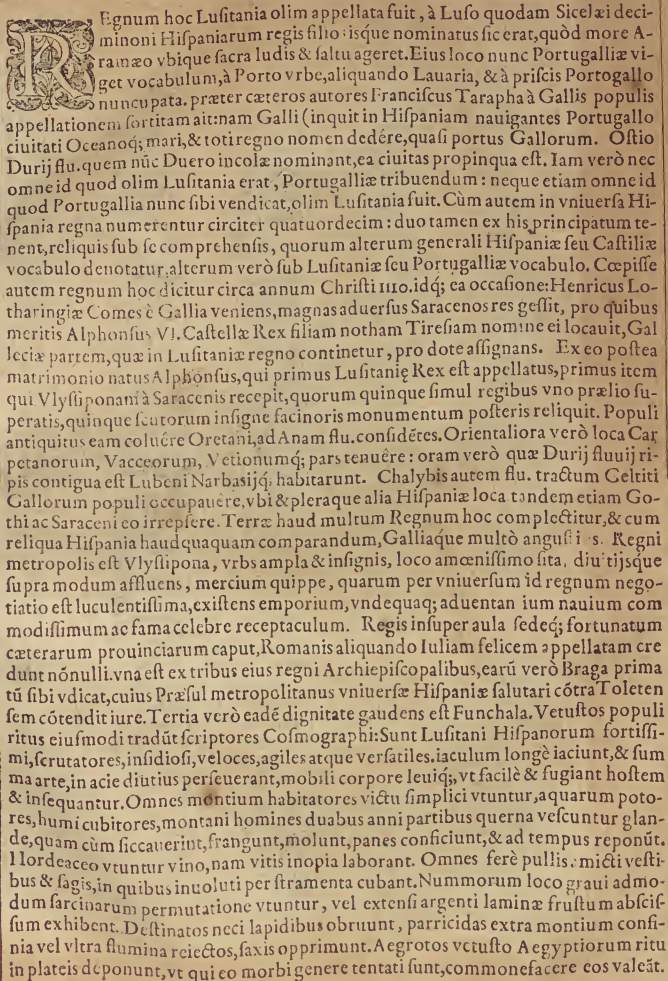 REgnum hoc Lusitania olim appellata fuit, à Luso quodam Sicelæi deci-
minoni Hispaniarum regis filio: isque nominatus sic erat, quòd more A-
ramæo vbique sacra ludis & saltu ageret. Eius loco nunc Portugalliæ vi-
get vocabulum, à Porto vrbe, aliquando Lauaria, & à priscis Portogallo
nuncupata. præter cæteros autores Franciscus Tarapha à Gallis populis
appellationem sortitam ait: nam Galli (inquit in Hispaniam nauigantes Portugallo
ciuitati Oceanoq; mari, & toti regno nomen dedére, quasi portus Gallorum. Ostio
Durij flu. quem nũc Duero incolæ nominant, ea ciuitas propinqua est. Iam verò nec
omne id quod olim Lusitania erat, Portugalliæ tribuendum: neque etiam omne id
quod Portugallia nunc sibi vendicat, olim Lusitania fuit. Cùm autem in vniuersa Hi-
spania regna numerentur circiter quatuordecim: duo tamen ex his principatum te-
nent, reliquis sub se comprehensis, quorum alterum generali Hispaniæ seu Castiliæ
vocabulo denotatur, alterum verò sub Lusitaniæ seu Portugalliæ vocabulo. Cœpisse
autem regnum hoc dicitur circa annum Christi 1110. idq; ea occasione: Henricus Lo-
tharingiæ Comes è Gallia veniens, magnas aduersus Saracenos res gessit, pro quibus
meritis Alphonsus VI. Castellæ Rex filiam notham Tiresiam nomine ei locauit, Gal
leciæ partem, quæ in Lusitaniæ regno continetur, pro dote assignans. Ex eo postea
matrimonio natus Alphonsus, qui primus Lusitanię Rex est appellatus, primus item
qui Vlyssiponam à Saracenis recepit, quorum quinque simul regibus vno prælio su-
peratis, quinque scutorum insigne facinoris monumentum posteris reliquit. Populi
antiquitus eam coluêre Oretani, ad Anam flu. confidẽtes. Orientaliora verò loca Car
petanorum, Vacceorum, Vetionumq; pars tenuêre: oram verò quæ Durij fluuij ri-
pis contigua est Lubeni Narbasijq; habitarunt. Chalybis autem flu. tractum Celtiti
Gallorum populi occupauêre, vbi & pleraque alia Hispaniæ loca tandem etiam Go-
thi ac Saraceni eo irrepsere. Terræ haud multum Regnum hoc complectitur, & cum
reliqua Hispania haudquaquam comparandum, Galliaque multò angusti s. Regni
metropolis est Vlyssipona, vrbs ampla & insignis, loco amœnissimo sita, diuitijsque
supra modum affluens, mercium quippe, quarum per vniuersum id regnum nego-
tiatio est luculentissima, existens emporium, vndequaq; aduentan ium nauium com
modissimum ac fama celebre receptaculum. Regis insuper aula sedeq; fortunatum
cæterarum prouinciarum caput, Romanis aliquando Iuliam felicem appellatam cre
dunt nónulli. vna est ex tribus eius regni Archiepiscopalibus, earũ verò Braga prima
tũ sibi vdicat, cuius Præsul metropolitanus vniuersæ Hispaniæ salutari cõtra Toleten
sem cõtendit iure. Tertia verò eadẽ dignitate gaudens est Funchala. Vetustos populi
ritus eiusmodi tradũt scriptores Cosmographi: Sunt Lusitani Hispanorum fortissi-
mi, scrutatores, insidiosi, veloces, agiles atque versatiles. iaculum longè iaciunt, & sum
ma arte, in acie diutius perseuerant, mobili corpore leuiq;, vt facilè & fugiant hostem
& insequantur. Omnes montium habitatores victu simplici vtuntur, aquarum poto-
res, humi cubitores, montani homines duabus anni partibus querna vescuntur glan-
de, quam cùm siccauerint, frangunt, molunt, panes conficiunt, & ad tempus reponũt.
Hordeaceo vtuntur vino, nam vitis inopia laborant. Omnes ferè pullis amicti vesti-
bus & sagis, in quibus inuoluti per stramenta cubant. Nummorum loco graui admo-
dum sarcinarum permutatione vtuntur, vel extensi argenti laminæ frustum abscis-
sum exhibent. Destinatos neci lapidibus obruunt, parricidas extra montium confi-
nia vel vltra flumina reiectos, saxis opprimunt. Aegrotos vetusto Aegyptiorum ritu
in plateis deponunt, vt qui eo morbi genere tentati sunt, commonefacere eos valeãt.